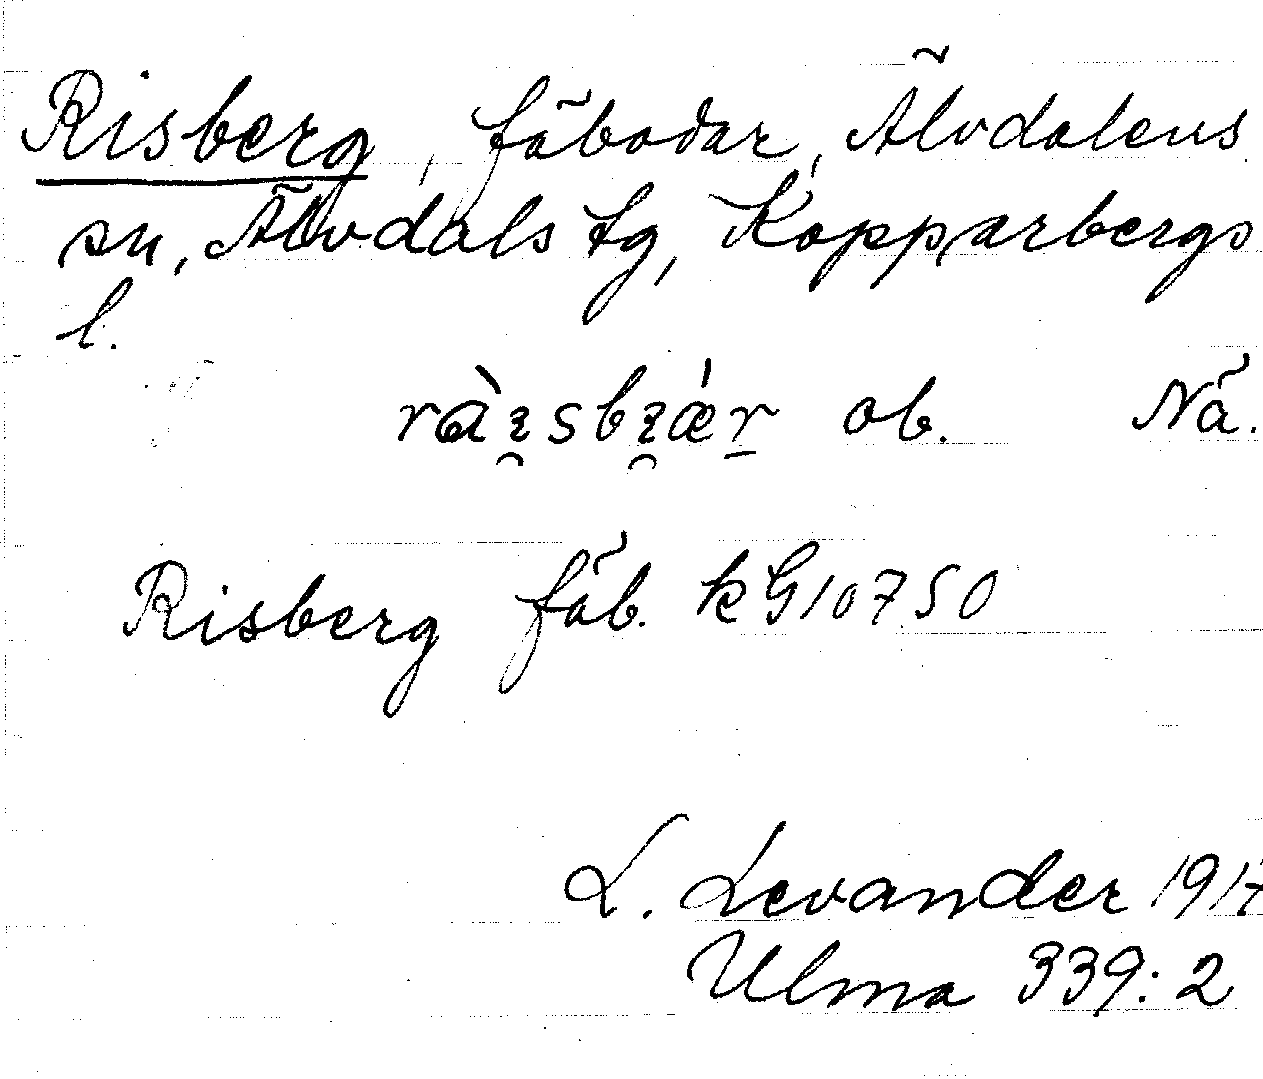 Risberg, fäbodar, Älvdalens
sn, Älvdals tg, Kopparbergs
l.
ob. Nä.
Risberg fäb. kG10750
L. Levander 1917
Ulma 339:2